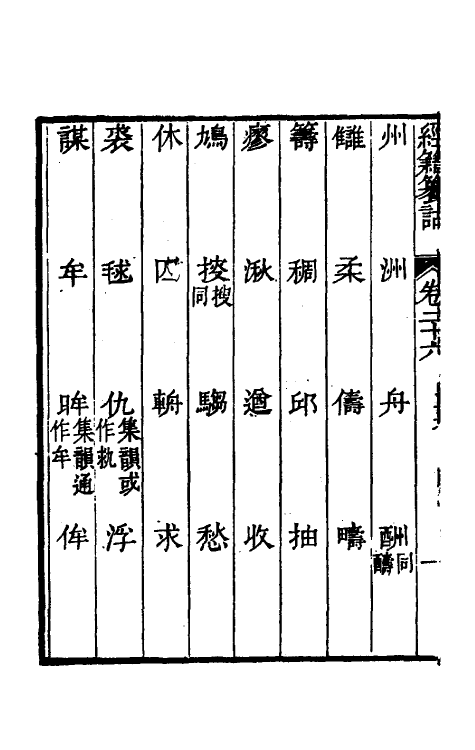 經籍籑詁 卷二十六 一
州 洲 舟 酬同醻
讎 柔 儔 疇
籌 稠 邱 抽
瘳 湫 遒 收
鳩 搜同 騶 愁
休 囚 輈 求
裘 毬 仇集韻或作 浮
謀 牟 眸集韻通作牟 侔